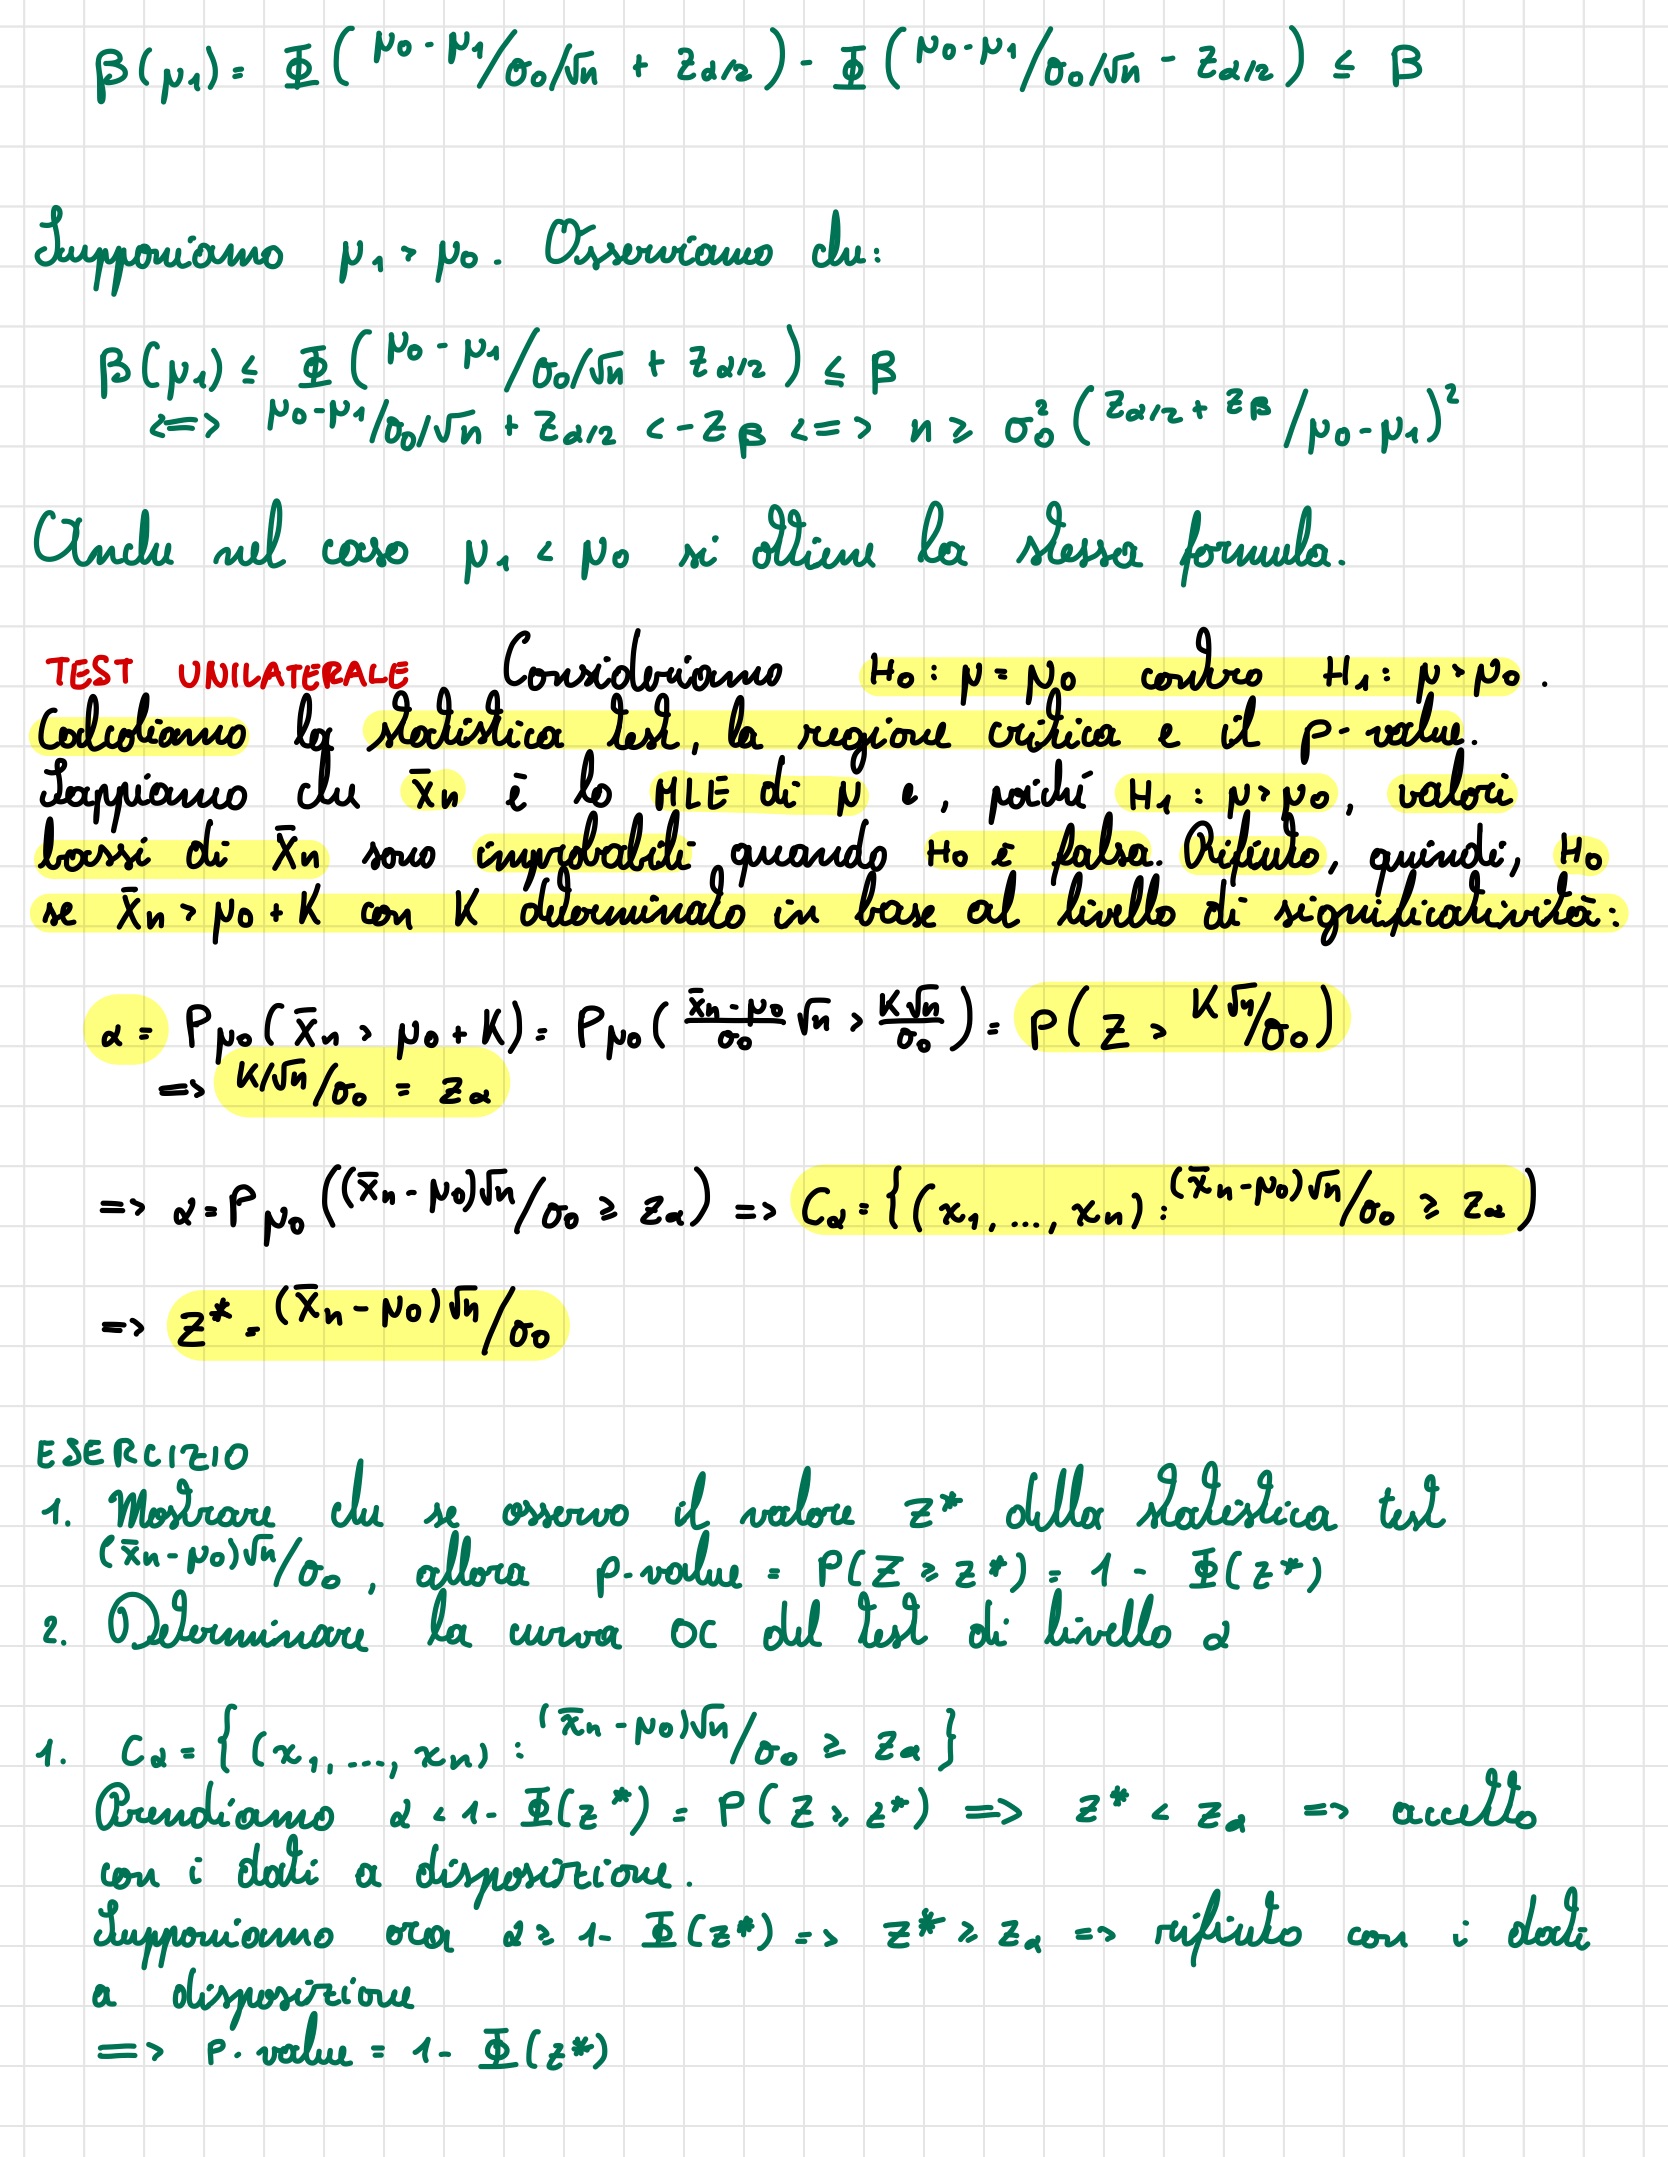 β(μ₁) = Φ(μ₀-μ₁/σ₀/√n + z_α/2) - Φ(μ₀-μ₁/σ₀/√n - z_α/2) ≤ β
Supponiamo μ₁ > μ₀. Osserviamo che:
β(μ₁) ≤ Φ(μ₀-μ₁/σ₀/√n + z_α/2) ≤ β
<=> μ₀-μ₁/σ₀/√n + z_α/2 < -z_β <=> n ≥ σ₀²(z_α/2 + z_β/μ₀-μ₁)²
Anche nel caso μ₁ < μ₀ si ottiene la stessa formula.
TEST UNILATERALE Consideriamo H₀: μ = μ₀ contro H₁: μ > μ₀.
Calcoliamo la statistica test, la regione critica e il p-value.
Sappiamo che x̄n è lo MLE di μ e, poiché H₁: μ > μ₀, valori
bassi di X̄n sono improbabili quando H₀ è falsa. Rifiuto, quindi, H₀
se X̄n > μ₀ + K con K determinato in base al livello di significatività:
α = P_μ₀(X̄n > μ₀ + K) = P_μ₀(x̄n-μ₀/σ₀ √n > K√n/σ₀) = P(Z > K√n/σ₀)
=> K/√n/σ₀ = z_α
=> α = P_μ₀((x̄n - μ₀)√n/σ₀ ≥ z_α) => C_α = {(x₁, ..., xn) : (x̄n-μ₀)√n/σ₀ ≥ z_α)
=> z* = (x̄n - μ₀)√n/σ₀
ESERCIZIO
1. Mostrare che se osservo il valore z* della statistica test
(x̄n-μ₀)√n/σ₀, allora p-value = P(Z ≥ z*) = 1 - Φ(z*)
2. Determinare la curva OC del test di livello α
1. C_α = {(x₁, ..., xn) : (x̄n - μ₀)√n/σ₀ ≥ z_α}
Prendiamo α < 1 - Φ(z*) = P(Z ≥ z*) => z* < z_α => accetto
con i dati a disposizione.
Supponiamo ora α ≥ 1 - Φ(z*) => z* ≥ z_α => rifiuto con i dati
a disposizione
=> p-value = 1 - Φ(z*)